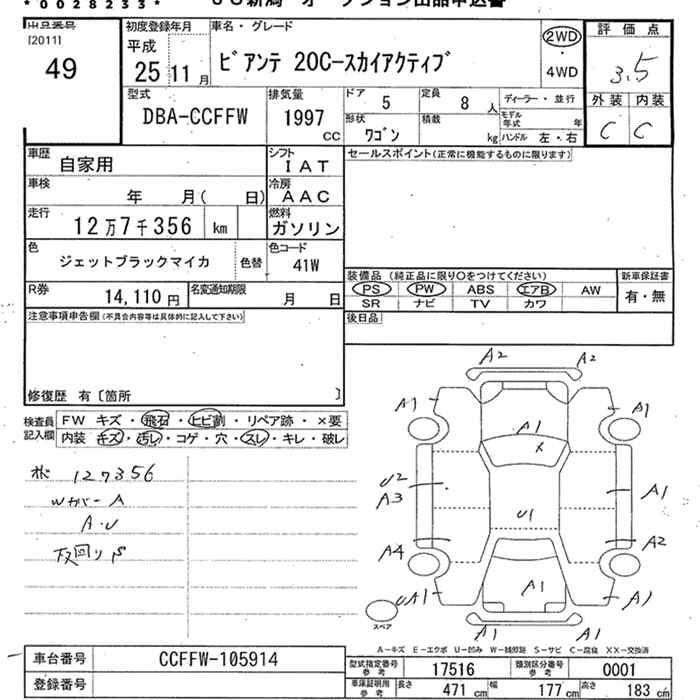 *0028233* オークション出品申込書
出品番号
[2011]
49
初度登録年月
平成
25 11月
車名・グレード
ビアンテ 20C-スカイアクティブ
2WD
・
4WD
評価点
3.5
外装 内装
C C
型式
DBA-CCFFW
排気量
1997
CC
ドア 5
定員 8 人
ディーラー・並行
形状 ワゴン
積載 kg
モデル年式 年
ハンドル 左・右
車歴 自家用
シフト IAT
セールスポイント(正常に機能するものに限ります)
車検 年 月( 日)
冷房 AAC
走行 12万7千356 km
燃料 ガソリン
色 ジェットブラックマイカ 色替
色コード 41W
R券 14,110円
名変通知期限 月 日
装備品 (純正品に限り○をつけてください)
PS PW ABS エアB AW
SR ナビ TV カワ
新車保証書
有・無
注意事項申告欄(不具合内容等は具体的に記入して下さい)
後日品
修復歴 有〔箇所 〕
検査員記入欄
FW キズ・飛石・ヒビ割・リペア跡・×要
内装 キズ・汚レ・コゲ・穴・スレ・キレ・破レ
127356
Wカバー A
A・U
下回りS
A2 A2
A1 A1 A1
X
U2
A3 A1
U1
A4 A2
UA1 A1 A1
A1 A1
スペア
A-キズ E-エクボ U-凹み W-補修跡 S-サビ C-腐食 XX-交換済
車台番号 CCFFW-105914
登録番号
型式指定番号参考 17516
類別区分番号参考 0001
車庫証明用参考 長さ 471cm 幅 177cm 高さ 183cm